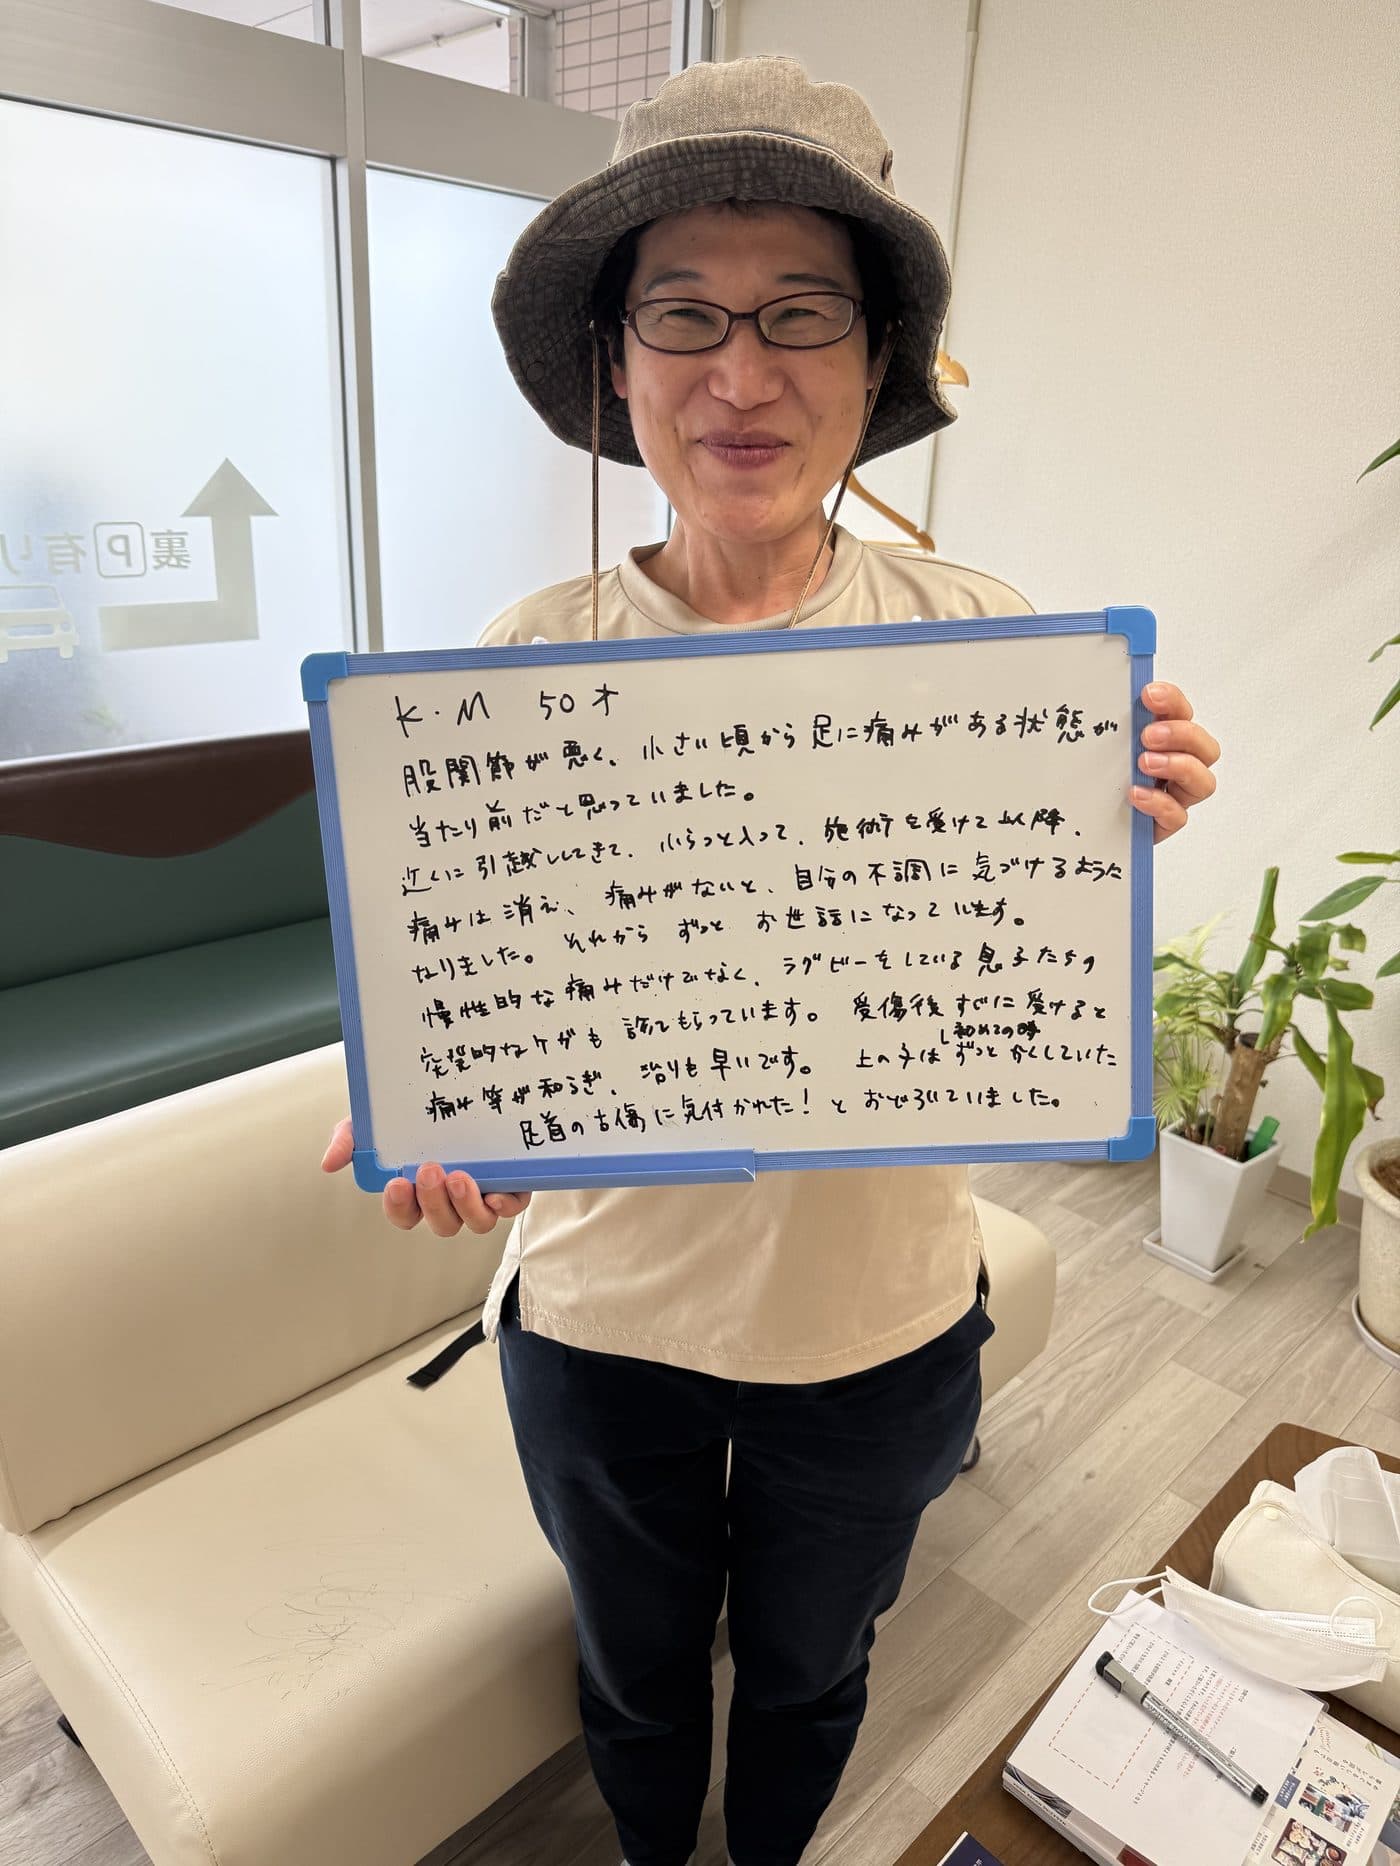 裏P有り
K.M 50才
股関節が悪く、小さい頃から足に痛みがある状態が
当たり前だと思っていました。
近くに引越ししてきて、ふらっと入って、施術を受けて以降、
痛みは消え、痛みがないと、自分の不調に気づけるように
なりました。それから ずっと お世話になっています。
慢性的な痛みだけでなく、ラグビーをしている息子たちの
突発的なケガも 診てもらっています。 受傷後すぐに受けると
痛み等が和らぎ、治りも早いです。 上の子は初めての時ずっとかくしていた
足首の古傷に気付かれた！と おどろいていました。